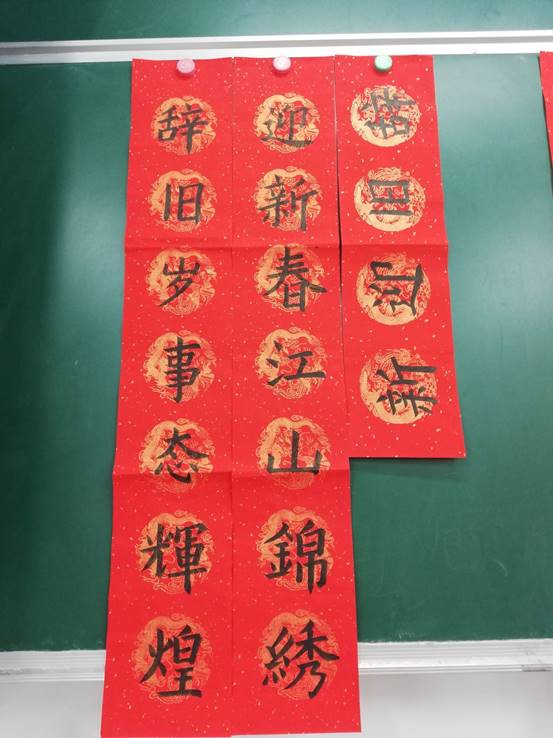 辞旧迎新
迎新春江山錦綉
辞旧岁事态輝煌